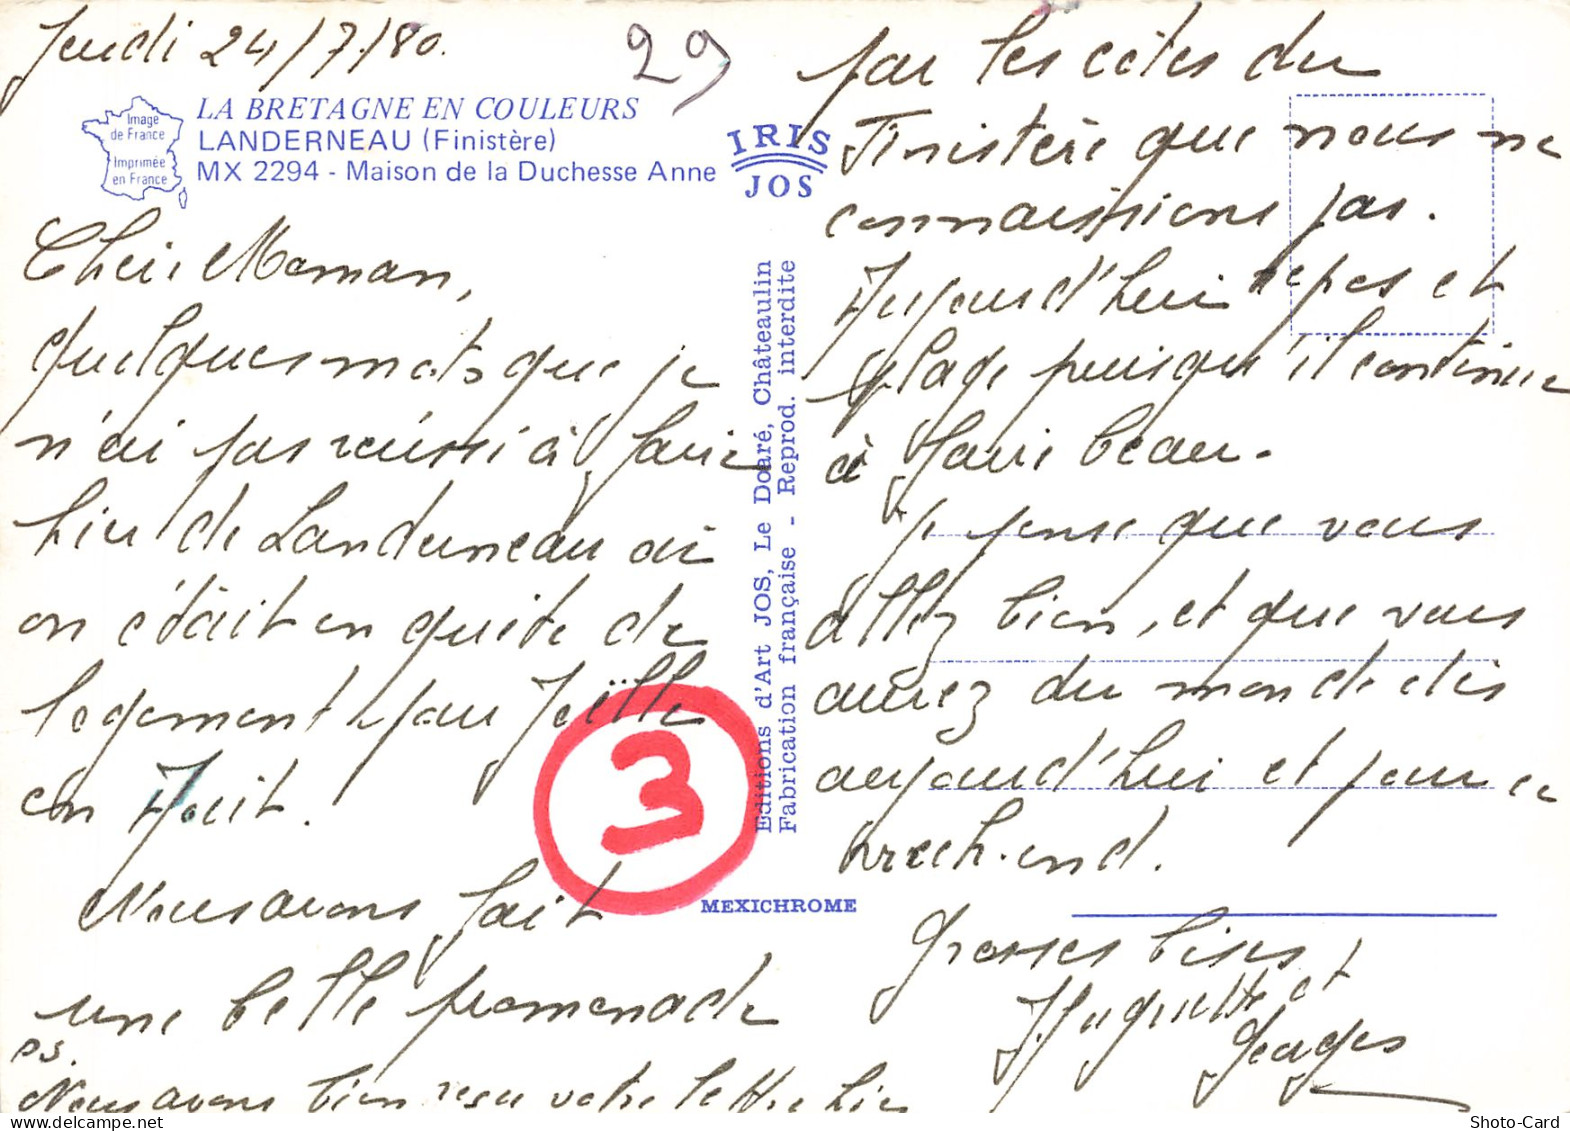 Jeudi 24/7/80.
29
Image
de France
Imprimée
en France
LA BRETAGNE EN COULEURS
LANDERNEAU (Finistère)
MX 2294 - Maison de la Duchesse Anne
IRIS
JOS
Chère Maman,
quelques mots que je
n'ai pas réussi à faire
hier de Landerneau où
on était en quête de
logement pour Joëlle
en Août.
Nous avons fait
une belle promenade
PS.
Nous avons bien reçu votre lettre hier
Editions d'Art JOS, Le Doaré, Châteaulin
Fabrication française - Reprod. interdite
3
MEXICHROME
par les côtes du
Finistère que nous ne
connaissions pas.
Aujourd'hui repos et
plage puisqu'il continue
à faire beau.
Je pense que vous
allez bien, et que vous
aurez du monde dès
aujourd'hui et pour ce
week-end.
Grosses bises,
Huguette et
Georges
Shoto-Card